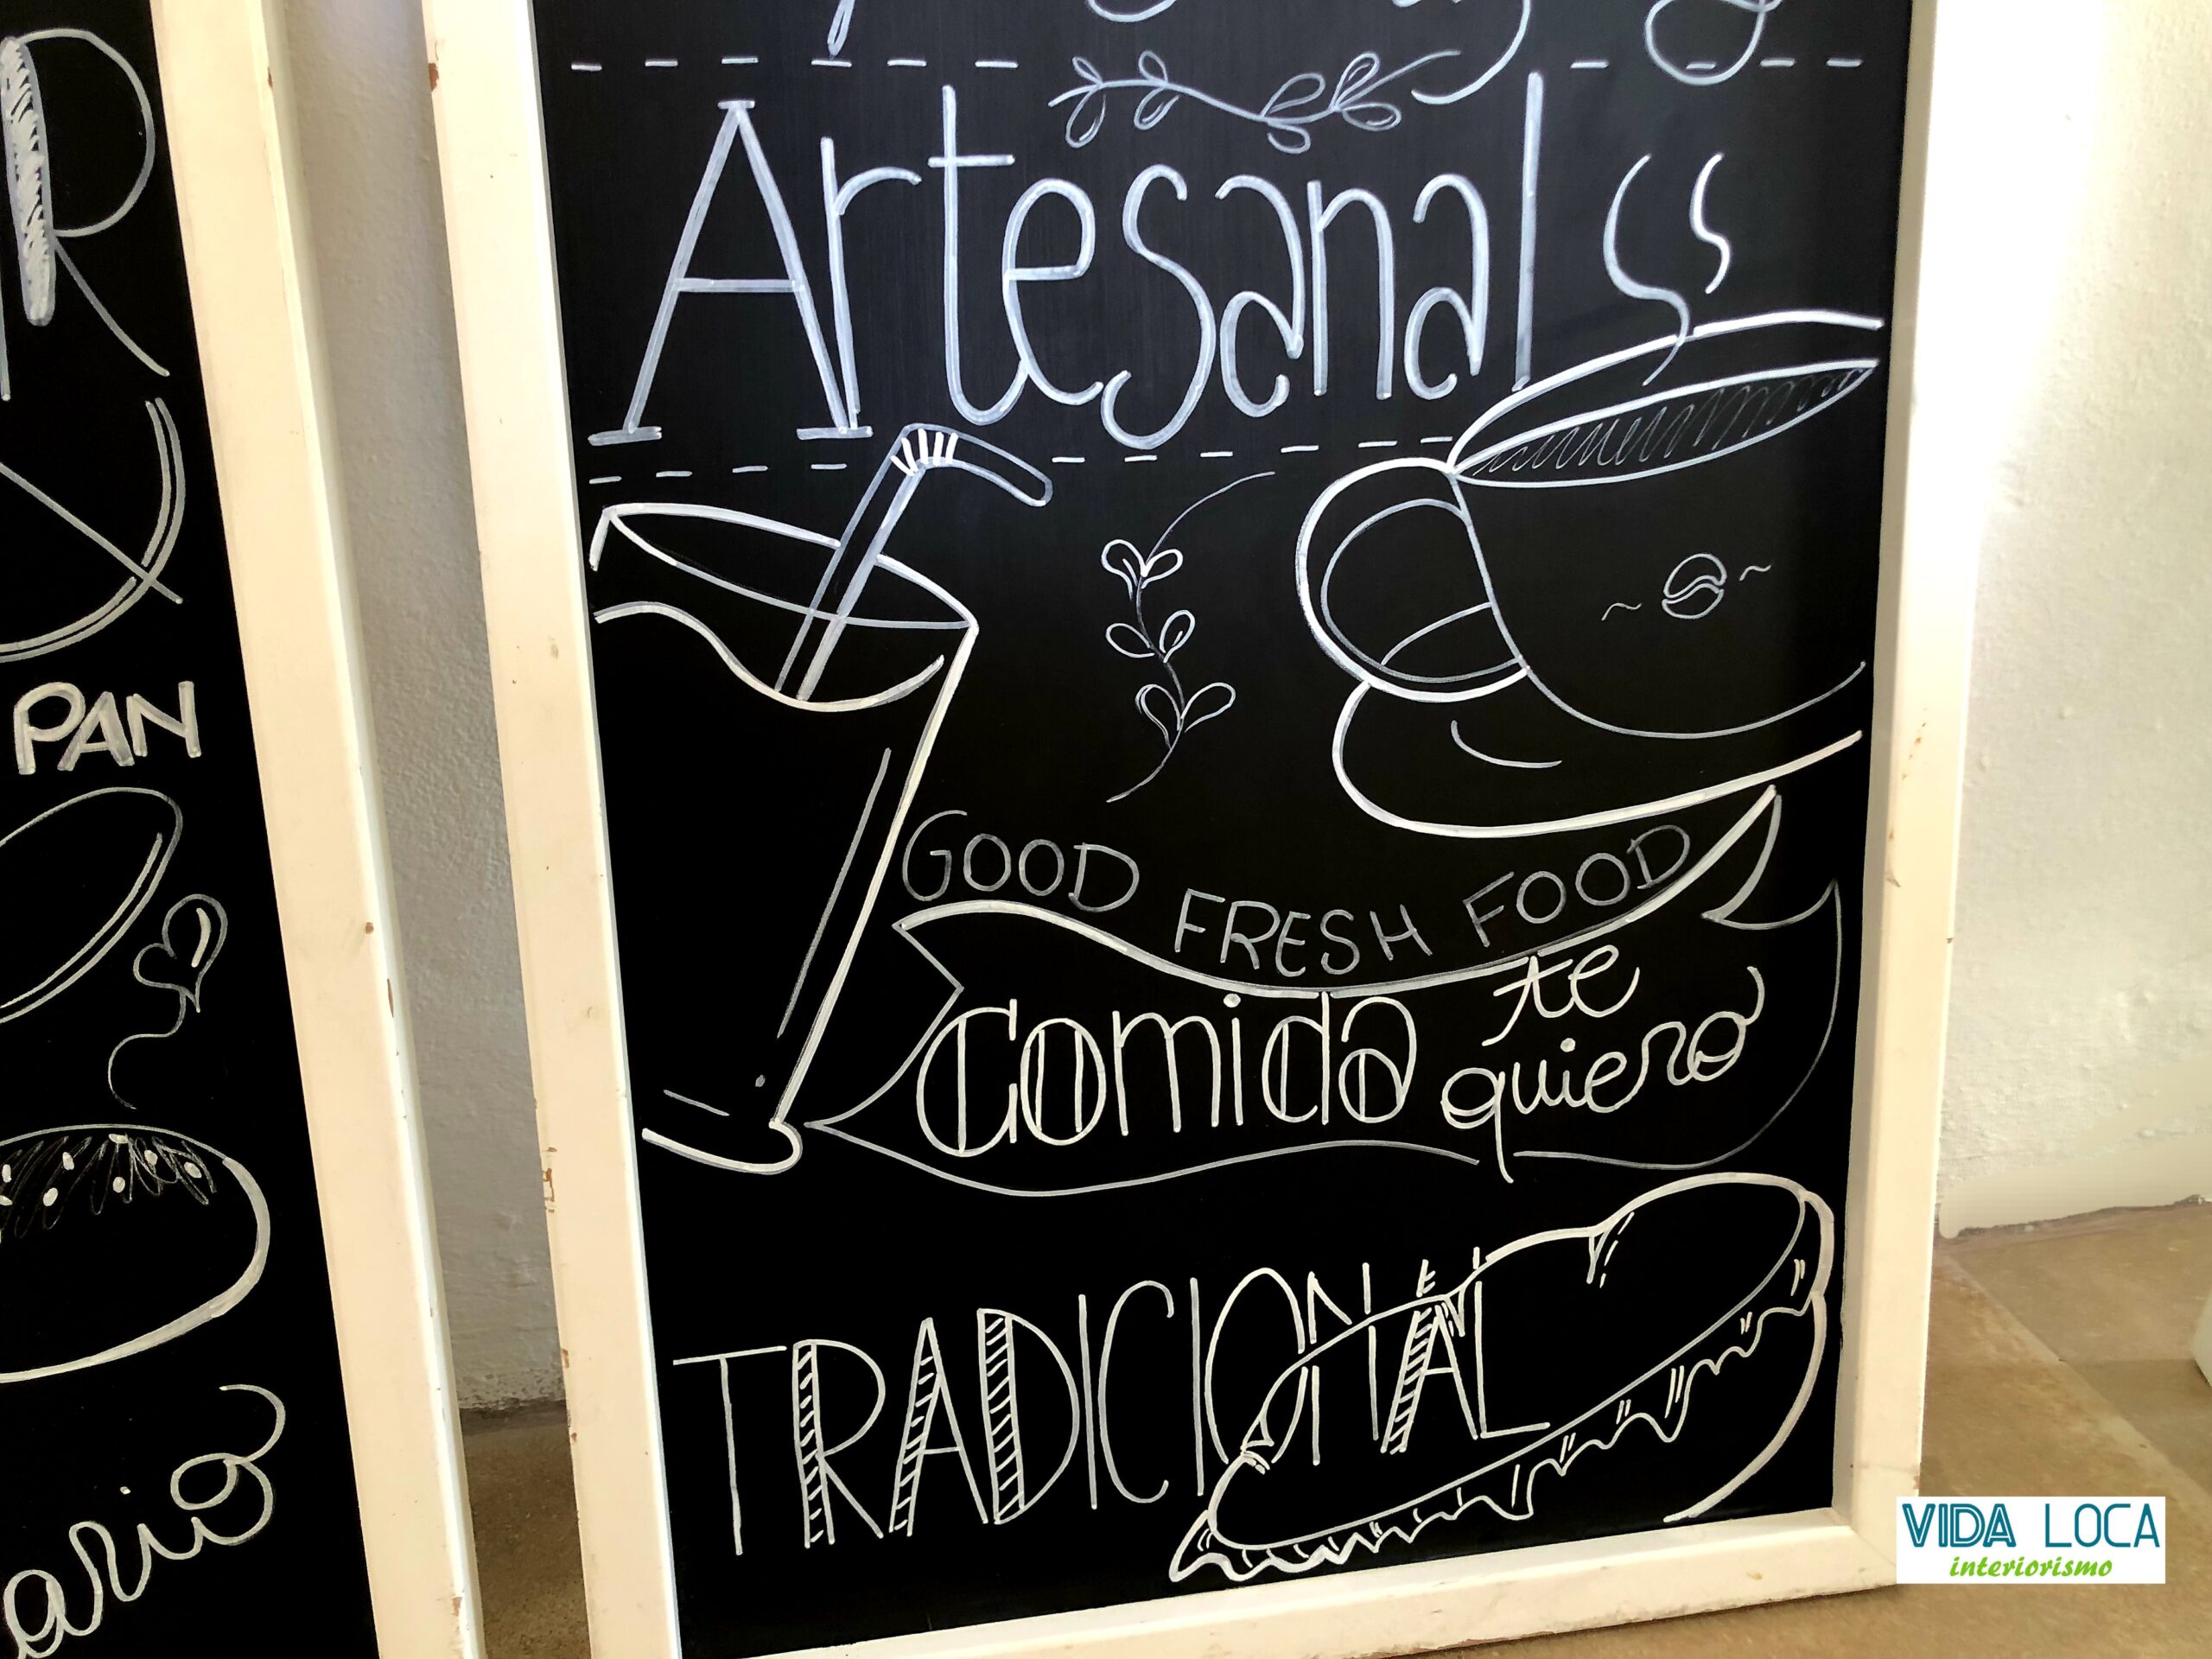 Artesanal
GOOD FRESH FOOD
Comida te quiero
TRADICIONAL
PAN
VIDA LOCA
interiorismo